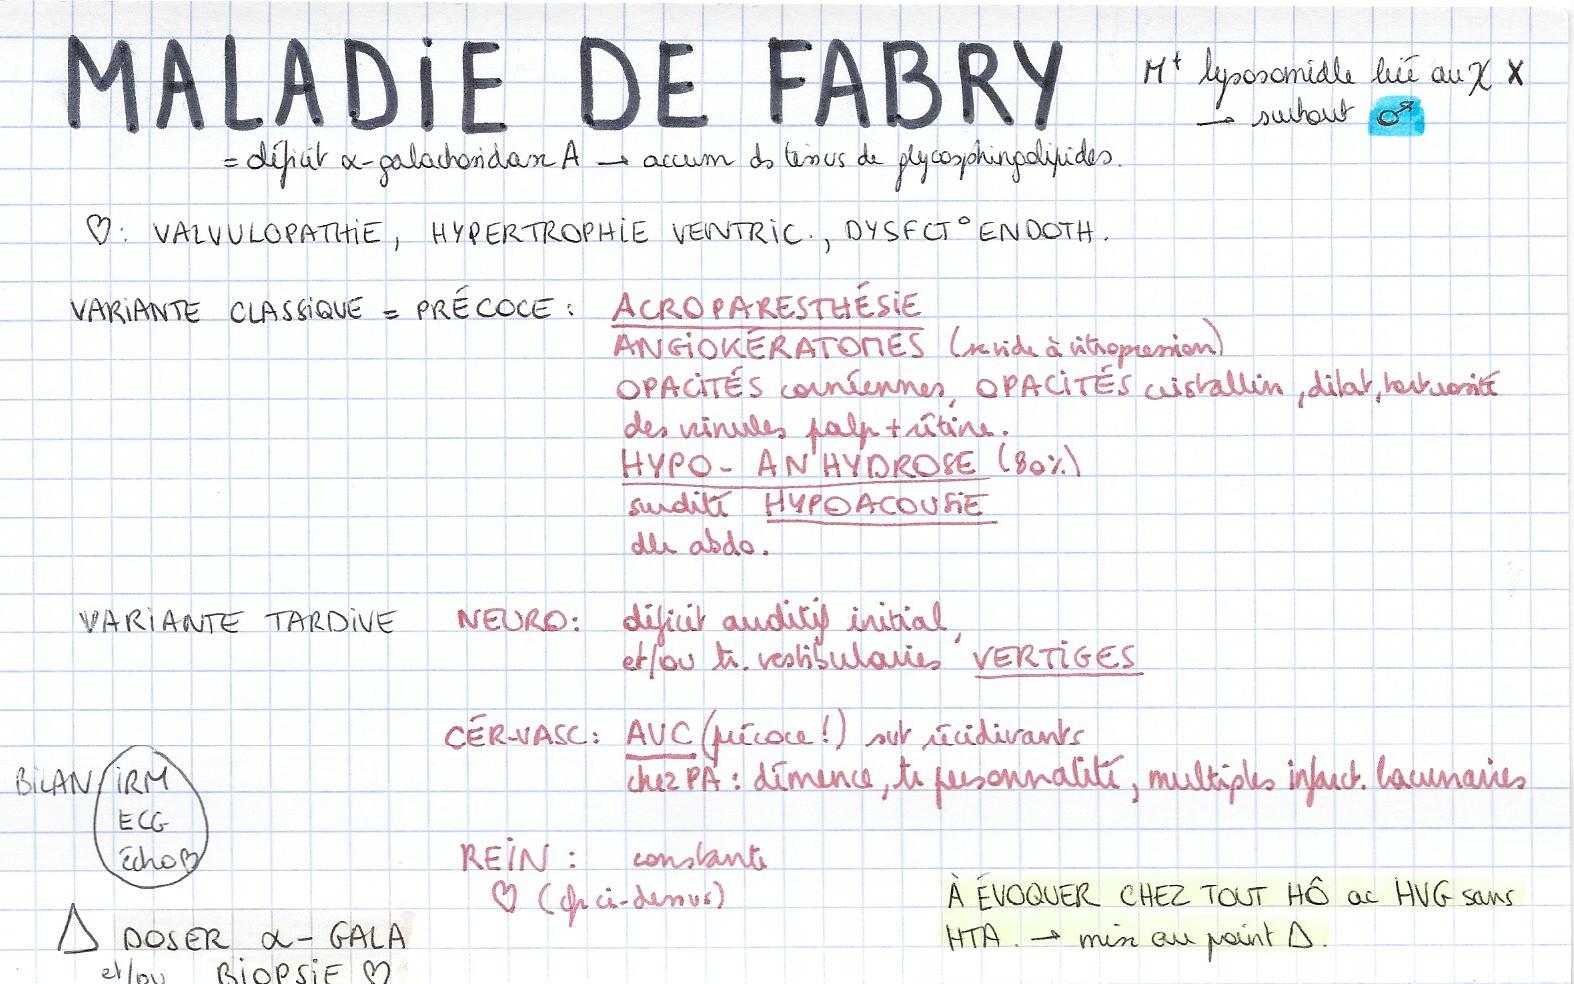 MALADIE DE FABRY
M† lysosomiale liée au χ X
→ surtout ♂
= déficit α-galactosidase A → accum ds tissus de glycosphingolipides.
♡: VALVULOPATHIE, HYPERTROPHIE VENTRIC., DYSFCT° ENDOTH.
VARIANTE CLASSIQUE = PRÉCOCE : ACROPARESTHÉSIE
ANGIOKÉRATOMES (se vide à vitropression)
OPACITÉS cornéennes, OPACITÉS cristallin, dilat, tortuosité
des veinules palp + rétine.
HYPO- ANHYDROSE (80%)
surdité HYPOACOUSIE
dlr abdo.
VARIANTE TARDIVE NEURO: déficit auditif initial,
et/ou tr. vestibulaires VERTIGES
CÉR-VASC: AVC (précoce!) svt récidivants
chez PA : démence, tr personnalité, multiples infarct. lacunaires
BILAN IRM
ECG
Écho ♡
REIN : constante
♡ (cf ci-dessus)
À ÉVOQUER CHEZ TOUT HÔ ac HVG sans
HTA. → mise au point Δ.
Δ DOSER α-GALA
et/ou BIOPSIE ♡